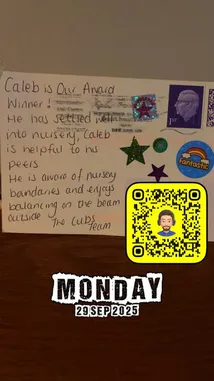 Caleb is Our Award
Winner!
He has settled well
into nursery, Caleb
is helpful to his
peers
He is aware of nursery
boundaries and enjoys
balancing on the beam
outside
The Cubs
Team
1ST
fantastic
MONDAY
29 SEP 2025